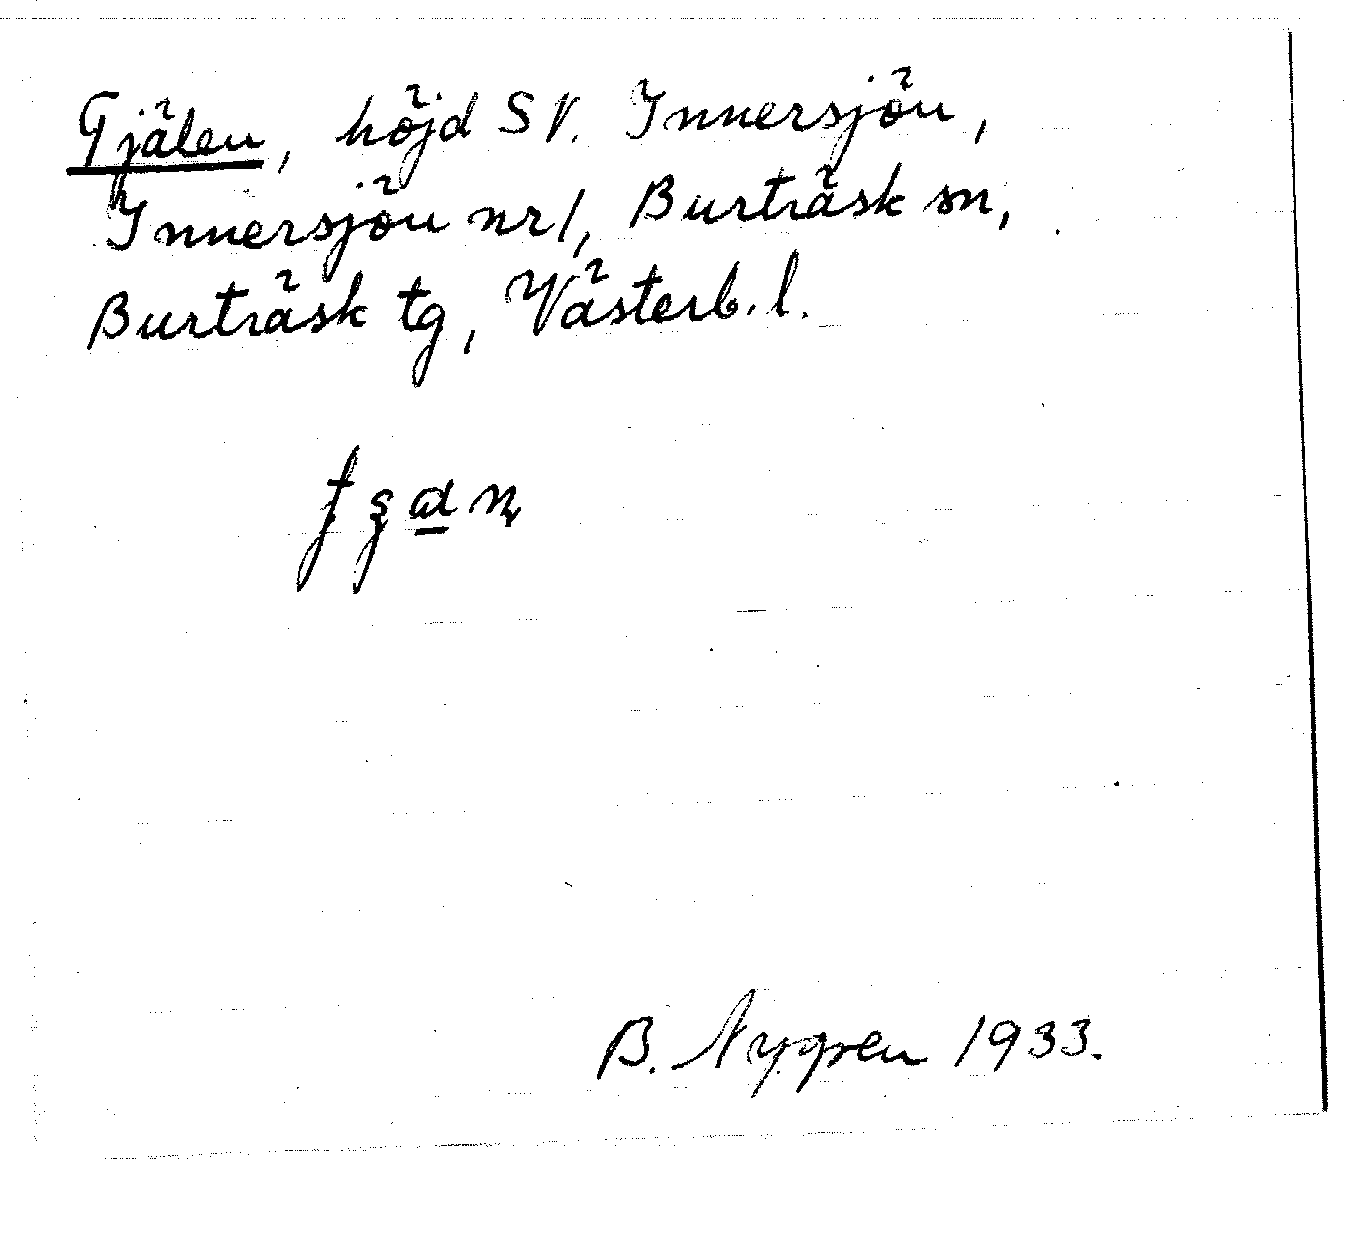 Tjälen, höjd SV. Innersjön,
Innersjön nr 1, Burträsk sn,
Burträsk tg, Västerb. l.
B. Nygren 1933.